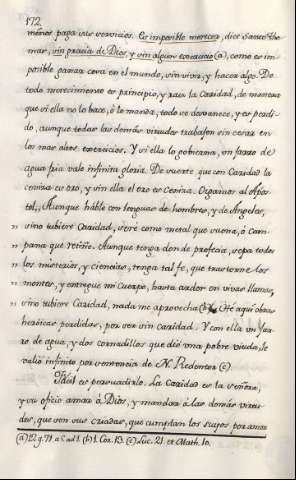 172
menos paga vais servicios. Es imposible merecer, dice Santo Tho
mas, sin gracia de Dios, y sin algun (a), como es im
posible ganar cera en el mundo, sin vivir, y hacer algo. De
todo merecimiento es principio, y raiz la Caridad, de manera
que si ella no lo hace, ò lo manda, todo se desvanece, y es perdi-
do, aunque todas las demás virtudes trabajen sin cesar en
los mas obras exercicios. Y si ella lo gobierna, un jarro de
agua fria vale infinita gloria. De suerte que con Caridad la
ceniza es oro, y sin ella el oro es Ceniza. Oigamos al Apos-
tol, Aunque hable con lenguas de hombres, y de Angeles,
" sino tubiere Caridad, seré como metal que suena, ó cam-
" pana que retiñe. Aunque tenga don de profecia, sepa todos
" los misterios, y ciencias, tenga tal fe, que trastorne los
" montes, y entregue mi Cuerpo, hasta arder en vivas llamas,
" sino tubiere Caridad, nada me aprovecha (b). Hé aqui obras
heroicas perdidas, por ser sin caridad. Y con ella un jar-
ro de agua, y dos cornadillos que dió una pobre viuda se
valió infinito por sentencia de N. Redentor (c)
Facil es persuadirlo. La Caridad es la señora,
y su oficio amar à Dios, y mandar à las demás virtu-
des, que son sus criadas, que cumplan los suyos por amor
(a) 1.2 q. 71. a. 5 ad 1. (b) 1. Cor. 13. (c) Luc. 21. et Math. 10.